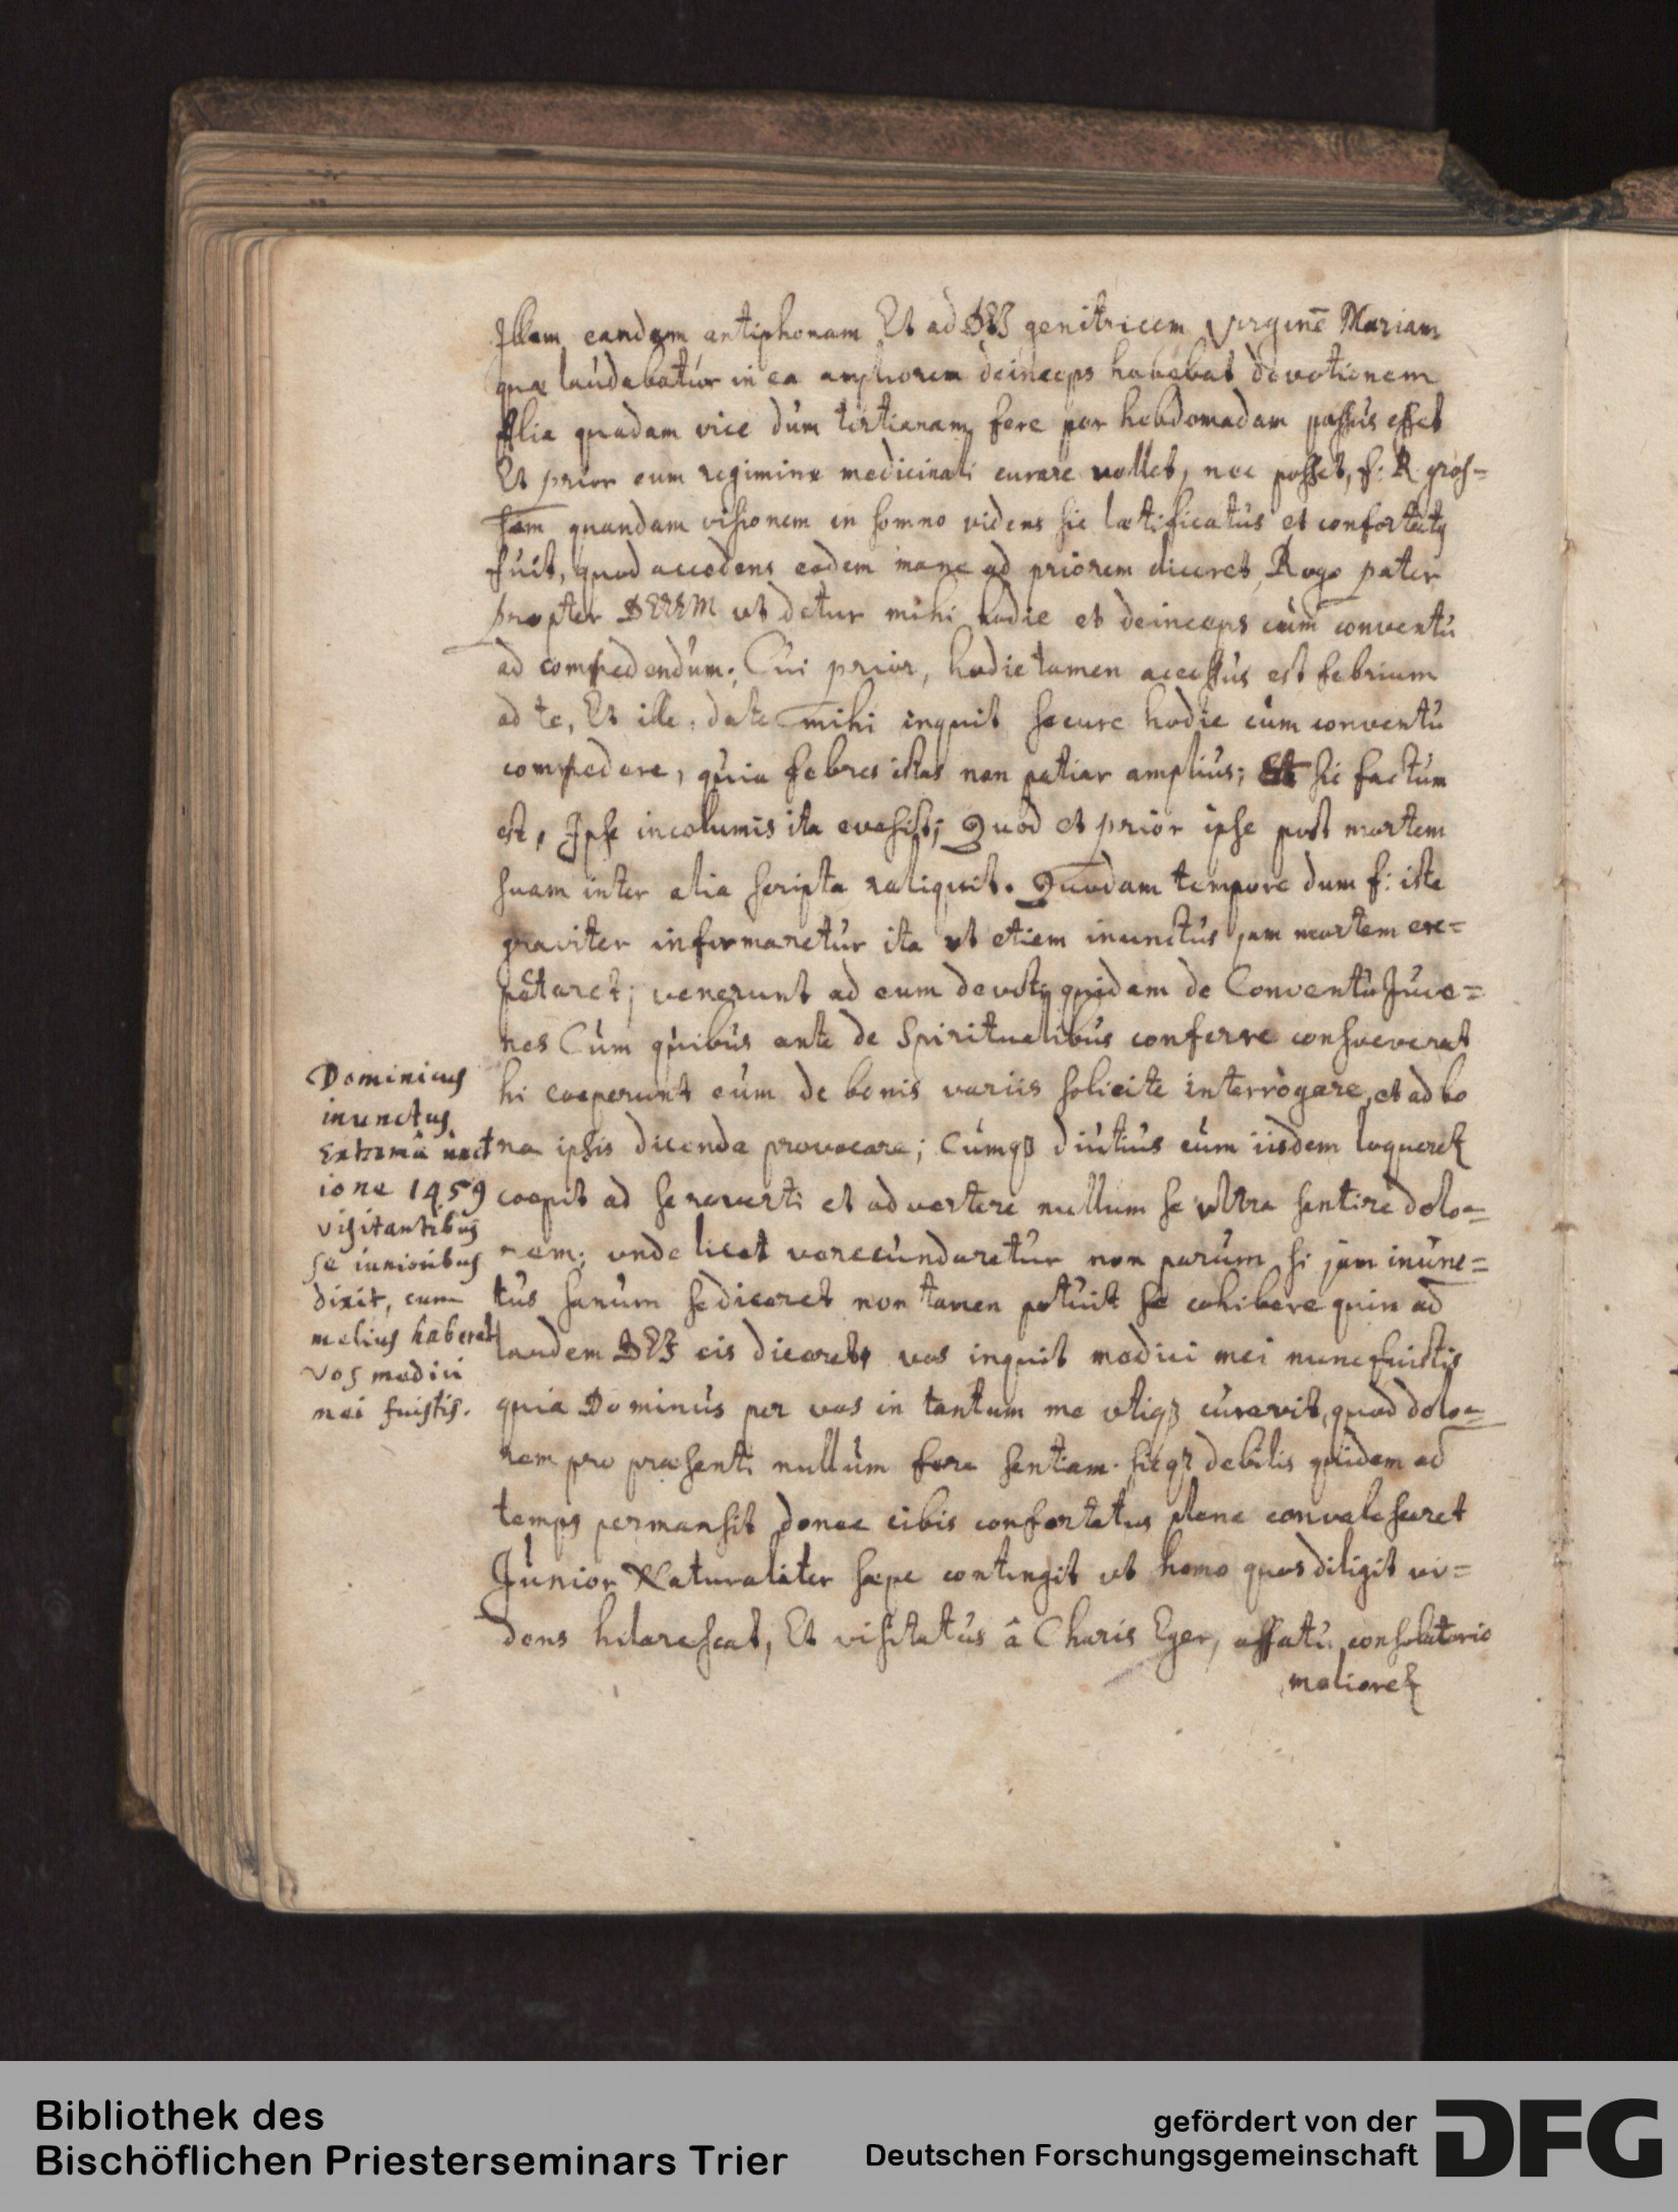 Illam eandem antiphonam Et ad DEI genitricem Virginē Mariam
quæ laudabatur in ea ampliorem deinceps habebat devotionem
Alia quadam vice dum tertianam fere per hebdomadam passus esset
Et prior eum regimine medicinali curare vellet, nec posset, f: R. gros=
sam quandam visionem in somno videns sic lætificatus et confortatꝰ
fuit, quod accedens eadem mane ad priorem diceret, Rogo pater
propter DEUM ut detur mihi hodie et deinceps cum conventu
ad comedendum; Cui prior, hodie tamen accessus est febrium
ad te, Et ille: date mihi inquit secure hodie cum conventu
comedere, quia febres istas non patiar amplius; Et sic factum
est, Ipse incolumis ita evasit; Quod et prior ipse post mortem
suam inter alia scripta reliquit. Quodam tempore dum f: iste
graviter infirmaretur ita ut etiam inunctus jam mortem exc=
petaret; venerunt ad eum devoti quidam de Conventu Juve=
nes Cum quibus ante de Spiritualibus conferre consveverat
hi cœperunt eum de bonis variis solicite interrogare, et ad bo
na ipsis dicenda provocare; Cumqȝ diutius cum iisdem loqueret
coepit ad se reverti et advertere nullum se ultra sentire dolo=
rem; unde licet verecundaretur non parum si jam inunc=
tus sanum se diceret non tamen potuit se cohibere quin ad
laudem DEI eis diceret, vos inquit medici mei nunc fuistis
quia Dominus per vos in tantum me utiqȝ curavit, quod dolo=
rem pro præsenti nullum fere sentiam. sicqȝ debilis quidem ad
tempꝰ permansit donec cibis confortatus plene convalesceret
Junior Naturaliter sæpe contingit ut homo quos diligit vi=
dens hilarescat, Et visitatus â Charis Eger, affatu consolatorio
melioret
Dominicus
inunctus
Extremâ unct
ione 1459
visitantibus
se iunioribus
dixit, cum
melius haberet
vos medici
mei fuistis.
Bibliothek des
Bischöflichen Priesterseminars Trier
gefördert von der
Deutschen Forschungsgemeinschaft
DFG